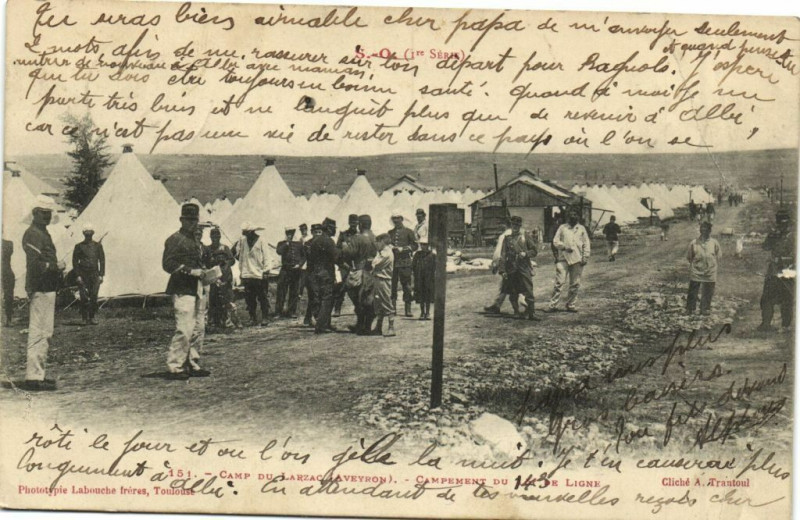 Tu seras bien aimable cher papa de m'envoyer seulement
S.-O. (1re Série)
2 mots, afin de me rassurer sur ton départ pour Bagnols.
et quand penses tu
rentrer de nouveau à Albi avec maman. J'espère
que tu dois être toujours en bonne santé. Quand à moi je me
porte très bien et ne languit plus que de revenir à Albi,
car ce n'est pas une vie de rester dans ce pays où l'on se
rôti le jour et ou l'on gèle la nuit. Je t'en causerai plus
151. - CAMP DU LARZAC (AVEYRON). - CAMPEMENT DU 143 DE LIGNE
Cliché A. Trantoul
longuement à Albi. En attendant de tes nouvelles reçois cher
Phototypie Labouche frères, Toulouse
papa mes plus
gros baisers.
Ton fils dévoué
Alphonse